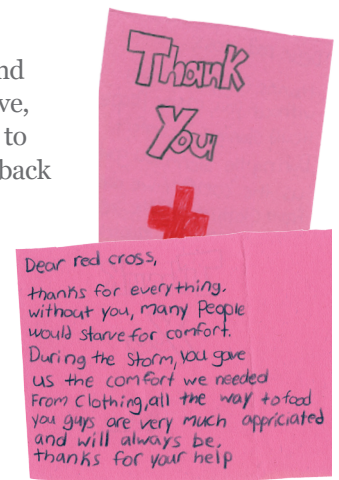 nd
ve,
to
back
Thank
You
Dear red cross,
thanks for everything.
without you, many People
would starve for comfort.
During the storm, you gave
us the comfort we needed
From Clothing, all the way to food
you guys are very much appriciated
and will always be.
thanks for your help